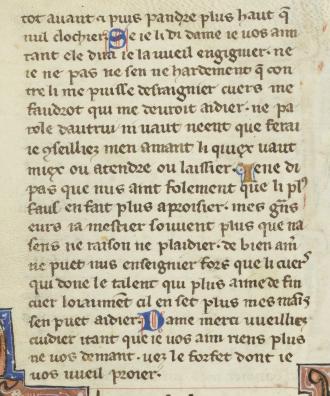 tot auant a puis pandre plus haut q̃
nul clochier. Se ie li di dame ie uos aim
tant ele dira ie la uueil engignier. ne
ie ne pas ne sen ne hardement q̃ con
tre li me puisse desraignier cuers me
faudroit qui me deuroit aidier. ne pa
role dautrui ni uaut neent que ferai
ie ꝯseilliez men amant li quiex uaut
miex ou atendre ou laissier. Ie ne di
pas que nus aint folement que li pl⁹
faus en fait plus a proisier. mes gñs
eurs ia mestier souuent plus que na
sens ne raison ne plaidier. de bien am̃
ne puet nus enseignier fors que li cuer⁹
qui done le talent qui plus aime de fin
cuer loiaument cil en set plus mes mais̃
sen puet aidier. Dame merci uueilliez
cuidier itant que ie uos aim riens plus
ne uos demant. uez le forfet dont ie
uos uueil proier.